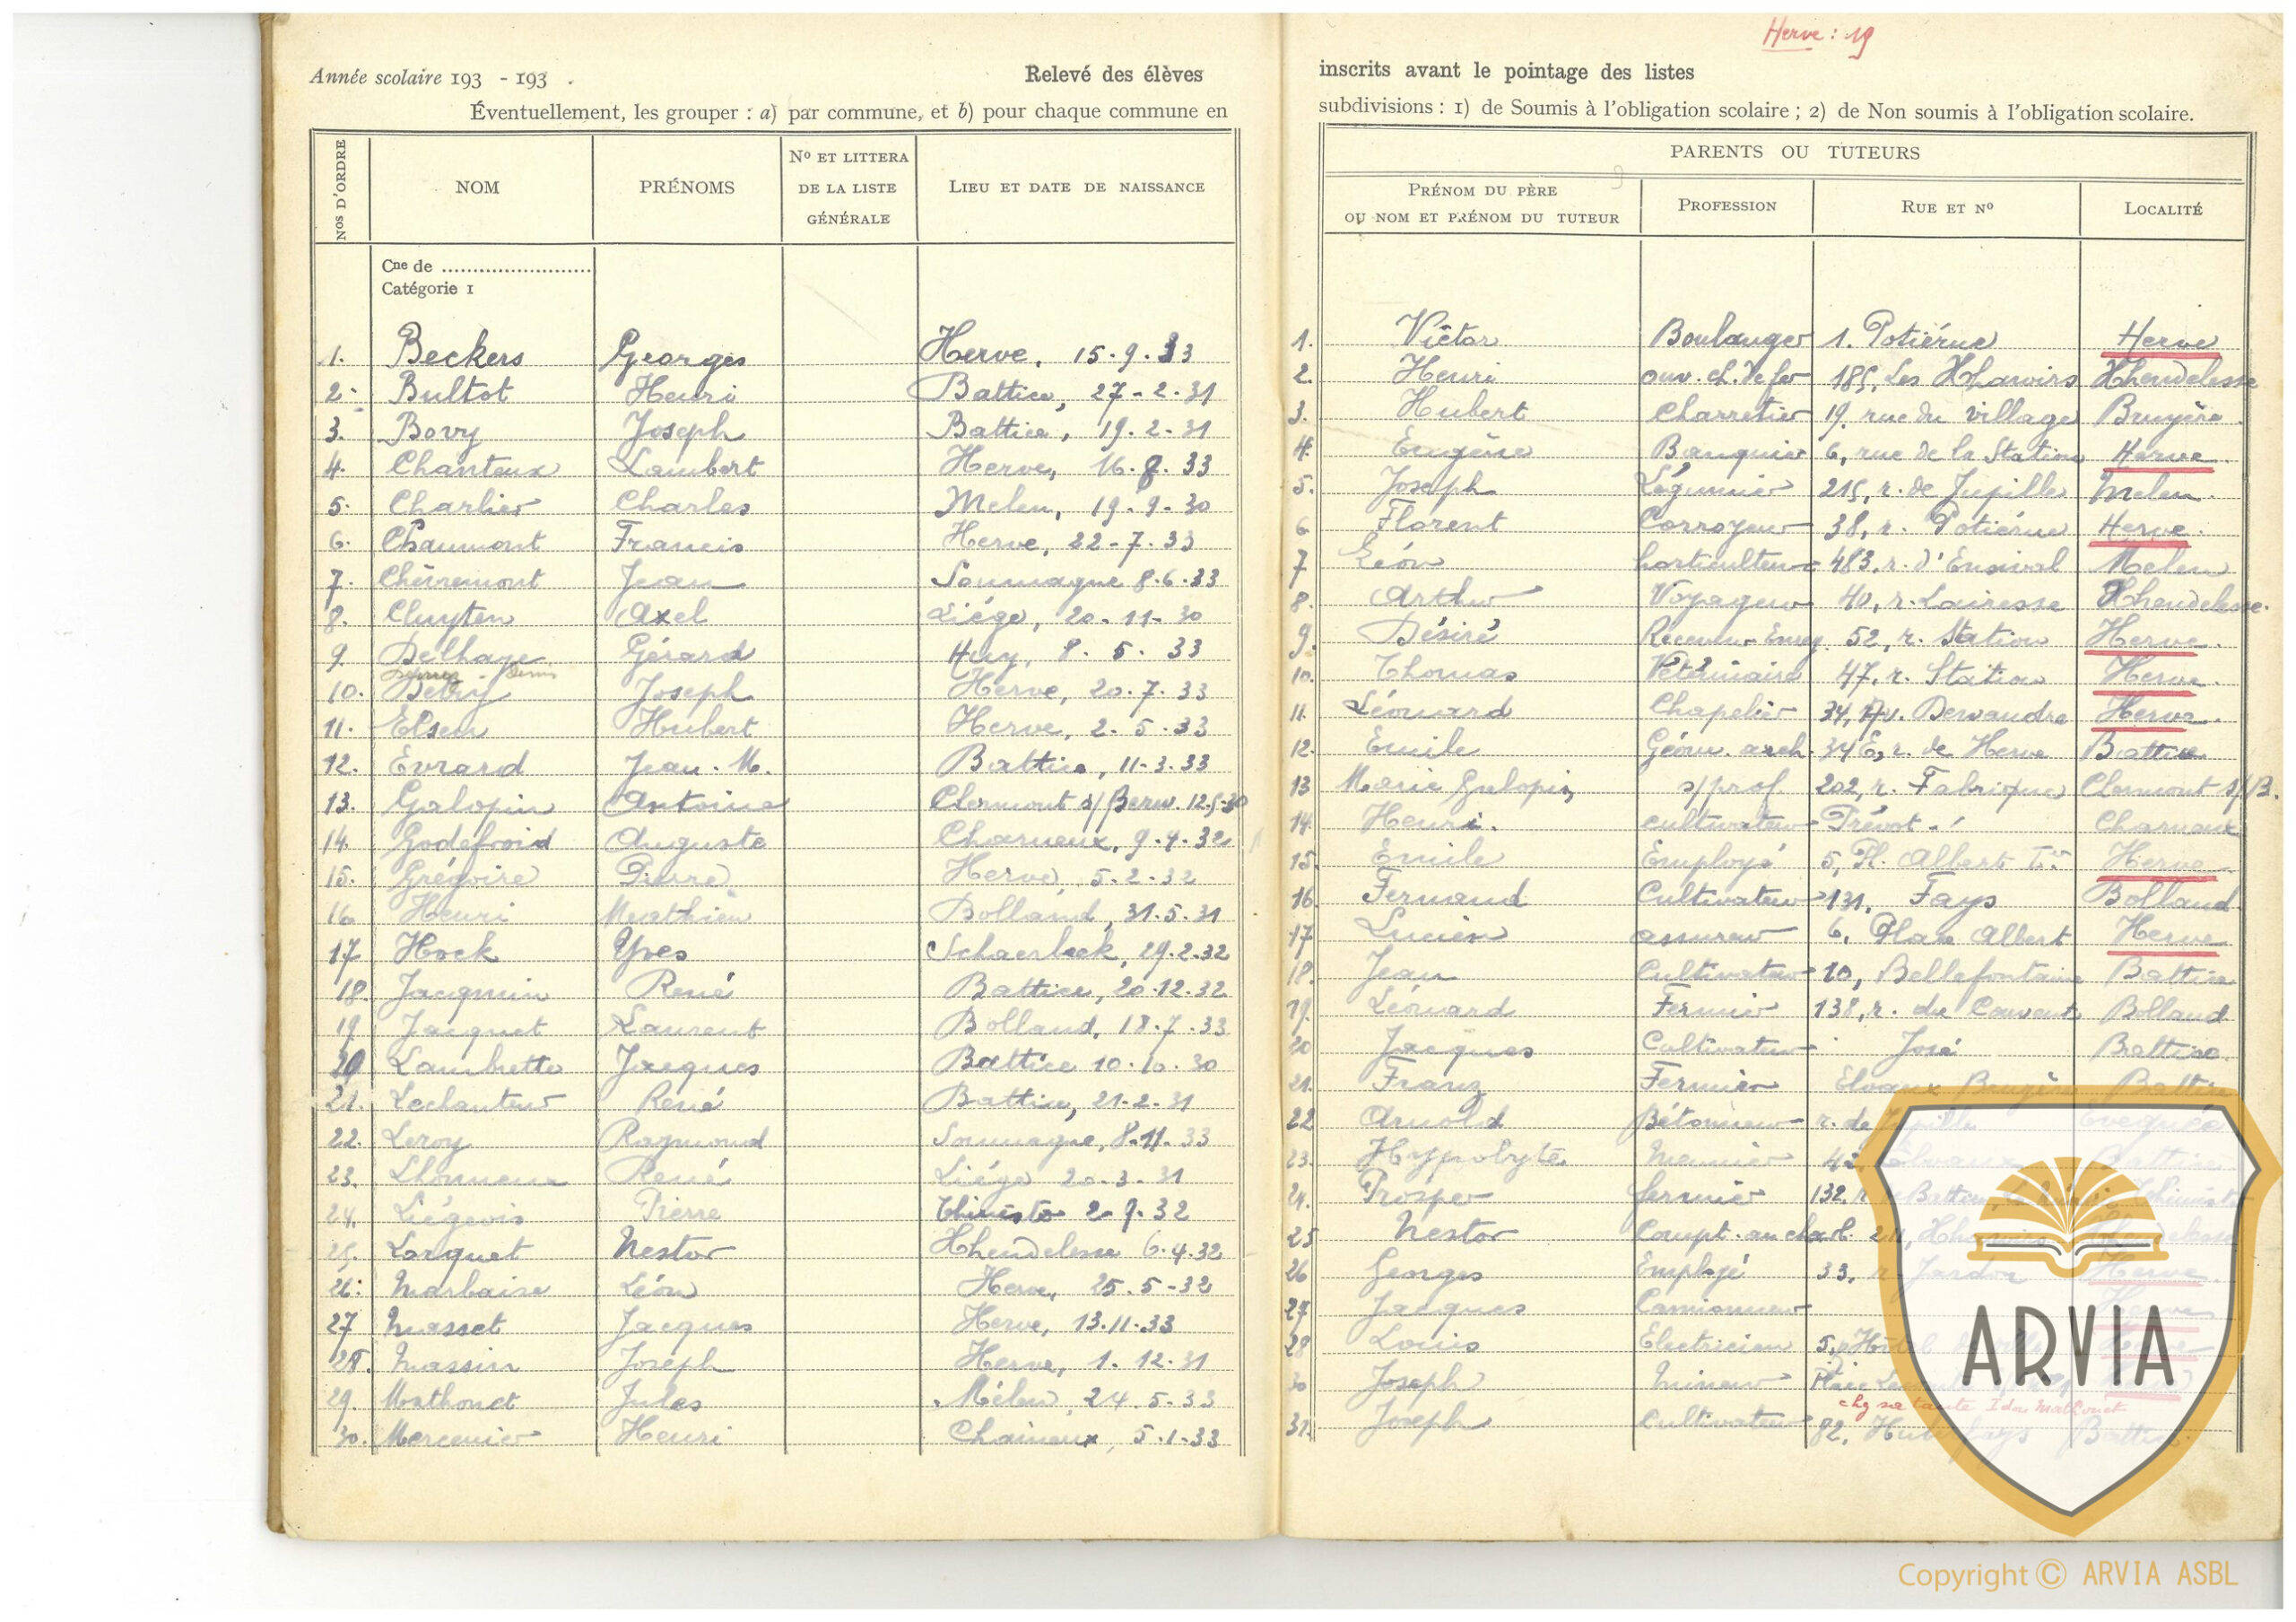 Herve : 19
Année scolaire 193 - 193 .
Relevé des élèves
inscrits avant le pointage des listes
Éventuellement, les grouper : a) par commune, et b) pour chaque commune en
subdivisions : 1) de Soumis à l'obligation scolaire ; 2) de Non soumis à l'obligation scolaire.
NOS D'ORDRE
NOM
PRÉNOMS
Nº ET LITTERA
DE LA LISTE
GÉNÉRALE
LIEU ET DATE DE NAISSANCE
PARENTS OU TUTEURS
PRÉNOM DU PÈRE
OU NOM ET PRÉNOM DU TUTEUR
PROFESSION
RUE ET Nº
LOCALITÉ
Cne de ........................
Catégorie 1
1. Beckers Georges Herve, 15-9-33
2. Bultot Henri Battice, 27-2-31
3. Bovy Joseph Battice, 19-2-31
4. Chanteux Lambert Herve, 16.8.33
5. Charlier Charles Melen, 19-9-30
6. Chaumont Francis Herve, 22-7-33
7. Chèvremont Jean Soumagne 8.6.33
8. Cluyten Axel Liége, 20-11-30
9. Delhaye Gérard Huy, 8. 5. 33
10. Debry Joseph Herve, 20.7.33
11. Elsen Hubert Herve, 2.5.33
12. Evrard Jean-M. Battice, 11-3.33
13. Galopin Antoine Clermont s/Berw. 12-5-30
14. Godefroid Auguste Charneux, 9-4-32
15. Grégoire Pierre Herve, 5-2-32
16 Henri Mathieu Bolland, 31.5.31
17 Hock Yves Schaerbeek, 29.2.32
18. Jacquin René Battice, 20-12-32
19 Jacquet Laurent Bolland, 18.7.33
20 Lambrette Jacques Battice 10.6.30
21. Lechanteur René Battice, 21-2-31
22. Leroy Raymond Soumagne, 8-11-33
23. Lhonneux René Liége 20-3-31
24. Liégeois Pierre Thimister 2-9.32
25. Lorquet Nestor Xhendelesse 6.4.32
26. Marbaise Léon Herve, 25.5-32
27 Masset Jacques Herve, 13.11.33
28. Massin Joseph Herve, 1.12.31
29. Mathonet Jules Mélen, 24.5-33
30. Mercenier Henri Chaineux, 5-1-33
1. Victor Boulanger 1. Potiérue Herve
2. Henri ouv. ch. de fer 185, Les Xhawirs Xhendelesse
3. Hubert Charretier 19. rue du village Bruyère
4. Eugène Banquier 6, rue de la Station Herve
5. Joseph Légumier 215, r. de Jupille Melen
6 Florent Corroyeur 38, r. Potiérue Herve.
7 Léon horticulteur 483, r. d'Ensival Melen
8. Arthur Voyageur 40, r. Lairesse Xhendelesse.
9. Désiré Receveur Enreg. 52, r. Station Herve.
10. Thomas Vétérinaire 47, r. Station Herve.
11. Léonard Chapelier 34, Av. Dewandre Herve.
12. Emile Géom. arch. 34 E, r. de Herve Battice
13 Marie Galopin s/prof. 202, r. Fabrique Clermont s/B.
14. Henri. cultivateur Trévot Charneux
15. Emile Employé 5, Pl. Albert Ier Herve
16. Fernand Cultivateur 131, Fays Bolland
17 Lucien assureur 6, Place Albert Herve
18. Jean Cultivateur 10, Bellefontaine Battice
19. Léonard Fermier 138, r. du Couvent Bolland
20 Jacques Cultivateur José Battice.
21. Franz Fermier Elvaux Bruyère Battice
22 Arnold Bétonneur r. de Jupille Evegnée
23. Hyppolyte Meunier 42, Elvaux Battice
24. Prosper fermier 132, r. Thimister
25 Nestor Compt. au charb. 211, Xhawirs Xhendelesse
26 Georges Employé 33, r. Jardon Herve.
27 Jacques Camionneur Herve
28 Louis Electricien 5, Hôtel de Ville Herve
30 Joseph Mineur Place
chez sa tante Ida Mathonet
31. Joseph Cultivateur 82, Battice
ARVIA
Copyright © ARVIA ASBL